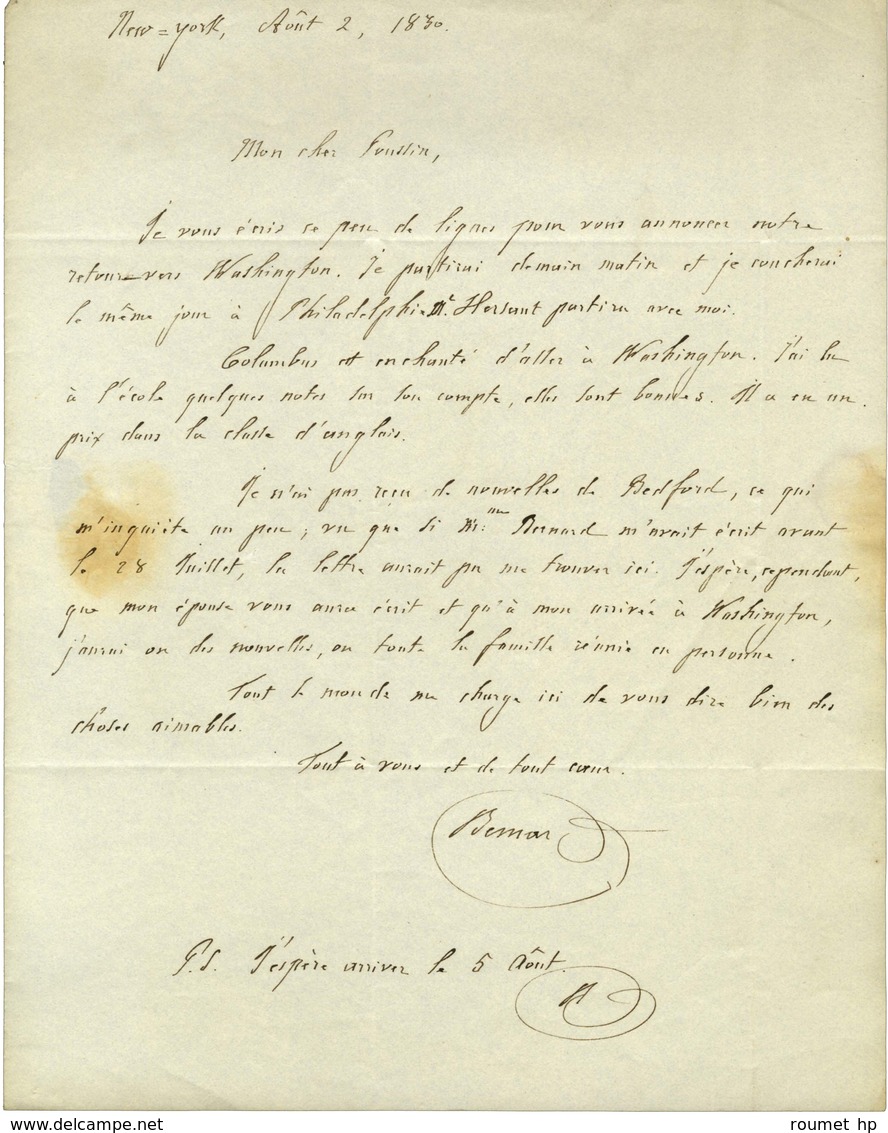 New=york, Août 2, 1830.
Mon cher Poussin,
Je vous écris ce peu de lignes pour vous annoncer notre
retour vers Washington. Je partirai demain matin et je coucherai
le même jour à Philadelphie. Mr. Hersant partira avec moi.
Columbus est enchanté d'aller à Washington. J'ai lu
à l'école quelques notes sur son compte, elles sont bonnes. Il a eu un
prix dans la classe d'anglais.
Je n'ai pas reçu de nouvelles de Bedford, ce qui
m'inquiète un peu; vu que si Mme Bernard m'avait écrit avant
le 28 Juillet, la lettre aurait pu me trouver ici. J'espère, cependant,
que mon épouse vous aura écrit et qu'à mon arrivée à Washington,
j'aurai ou des nouvelles, ou toute la famille réunie en personne.
Tout le monde me charge ici de vous dire bien des
choses aimables.
Tout à vous et de tout cœur.
Bernard
P.S. J'espère arriver le 5 Août.
B
delcampe.net
roumet hp